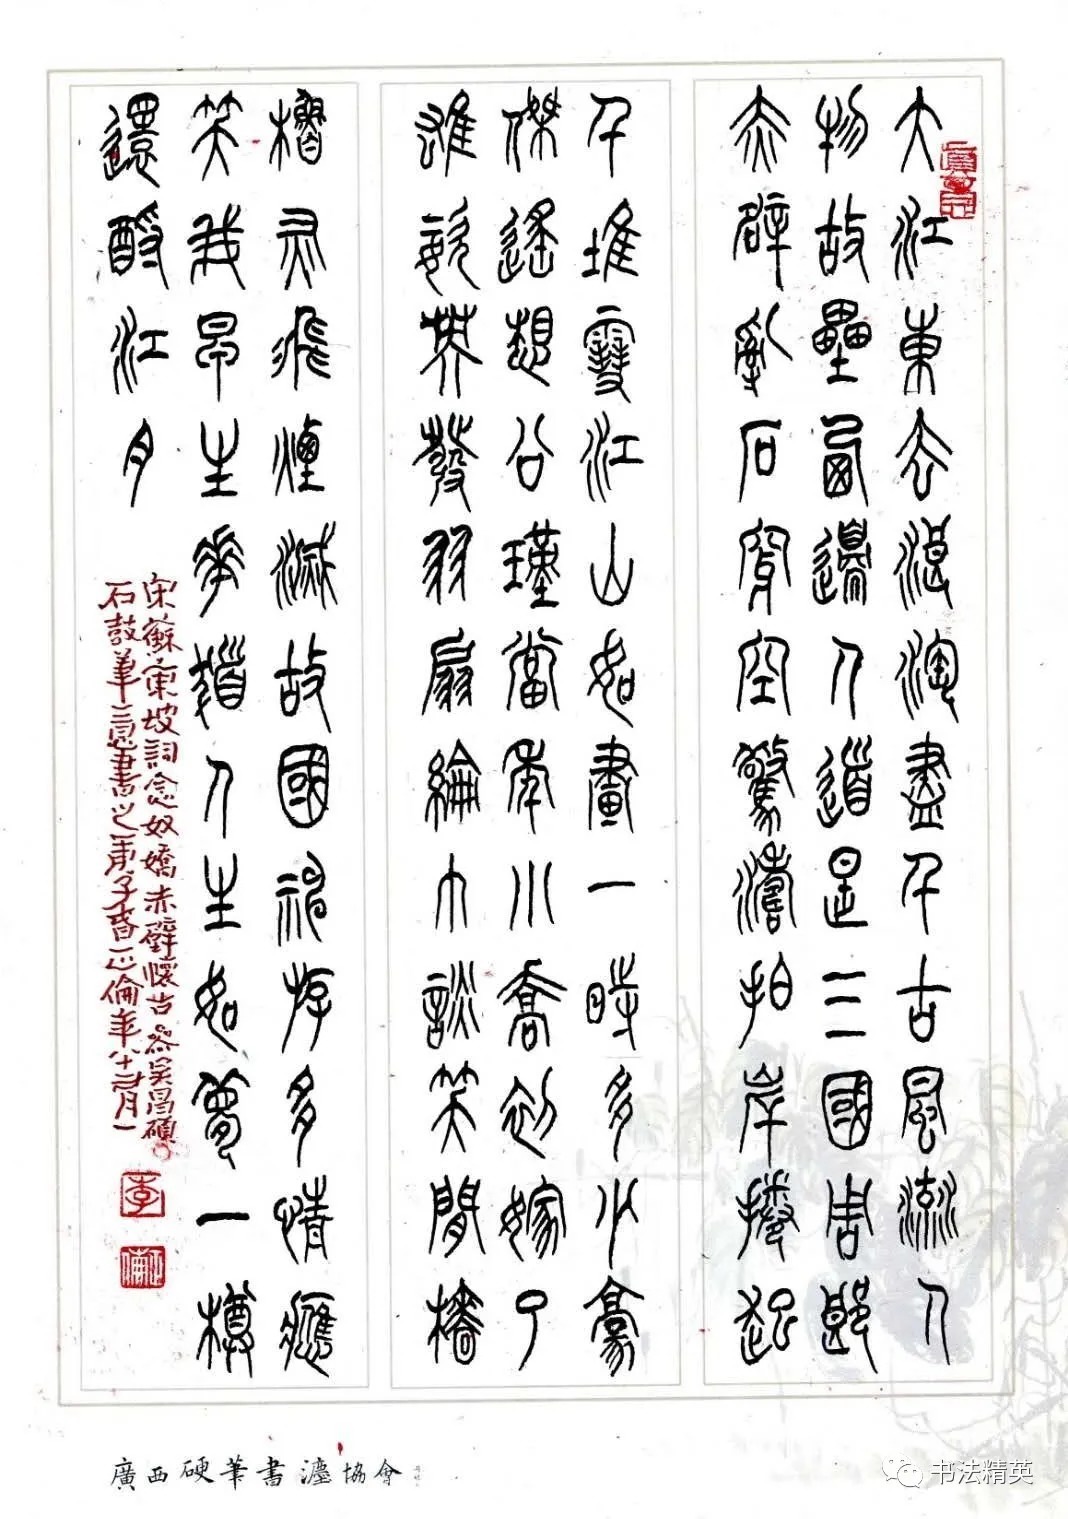 大江東去浪淘盡千古風流人
物故壘西邊人道是三國周郎
赤壁亂石穿空驚濤拍岸捲起
千堆雪江山如畫一時多少豪
傑遙想公瑾當年小喬初嫁了
雄姿英發羽扇綸巾談笑間檣
櫓灰飛煙滅故國神游多情應
笑我早生華髮人生如夢一樽
還酹江月
宋蘇東坡詞念奴嬌赤壁懷古參吳昌碩
石鼓筆意書之庚子春正倫年八十有一
李
正倫
廣西硬筆書灋協會
书法精英